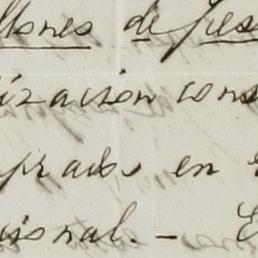 llones de pes
ización cons
prados en
isional. — E